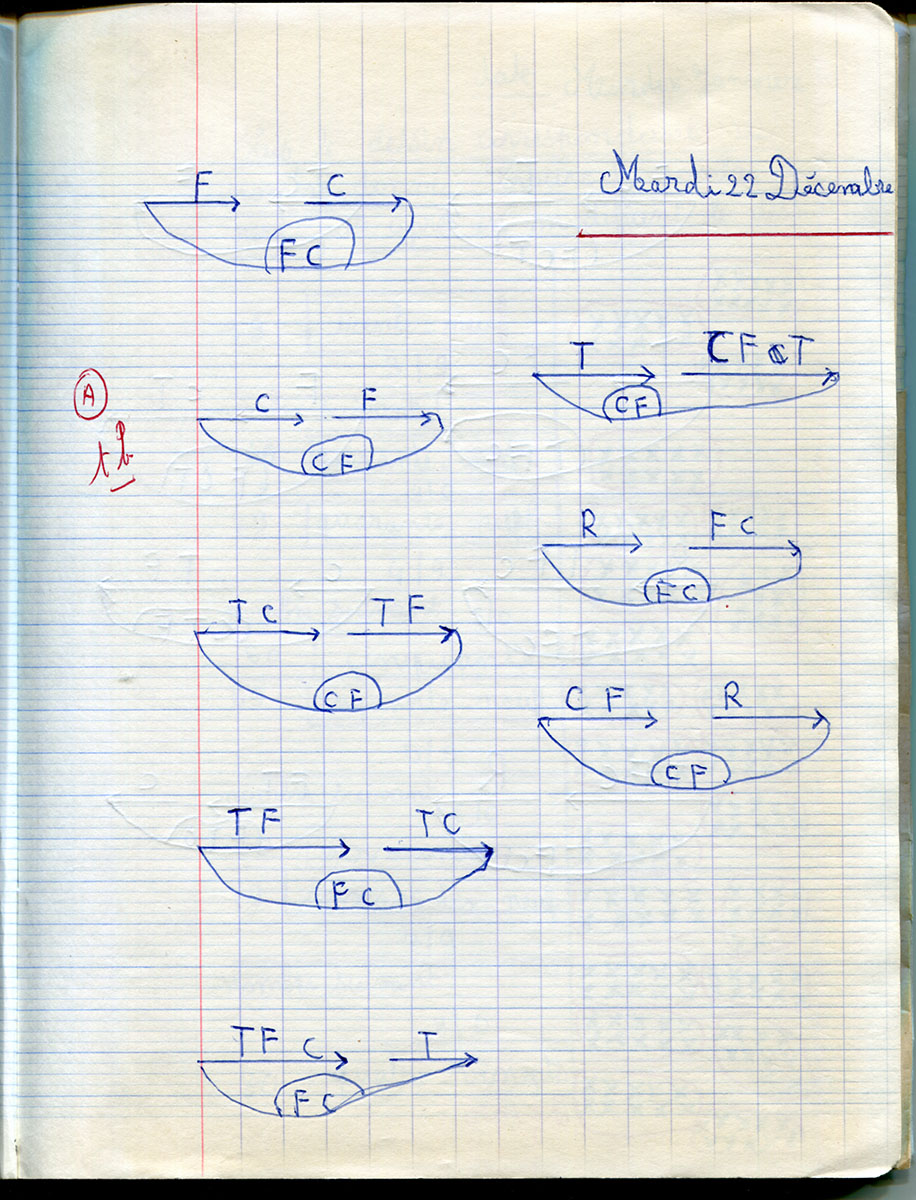 Mardi 22 Décembre
F C
FC
A
tb
C F
CF
TC TF
CF
TF TC
FC
TFC T
FC
T CFT
CF
R FC
FC
CF R
CF